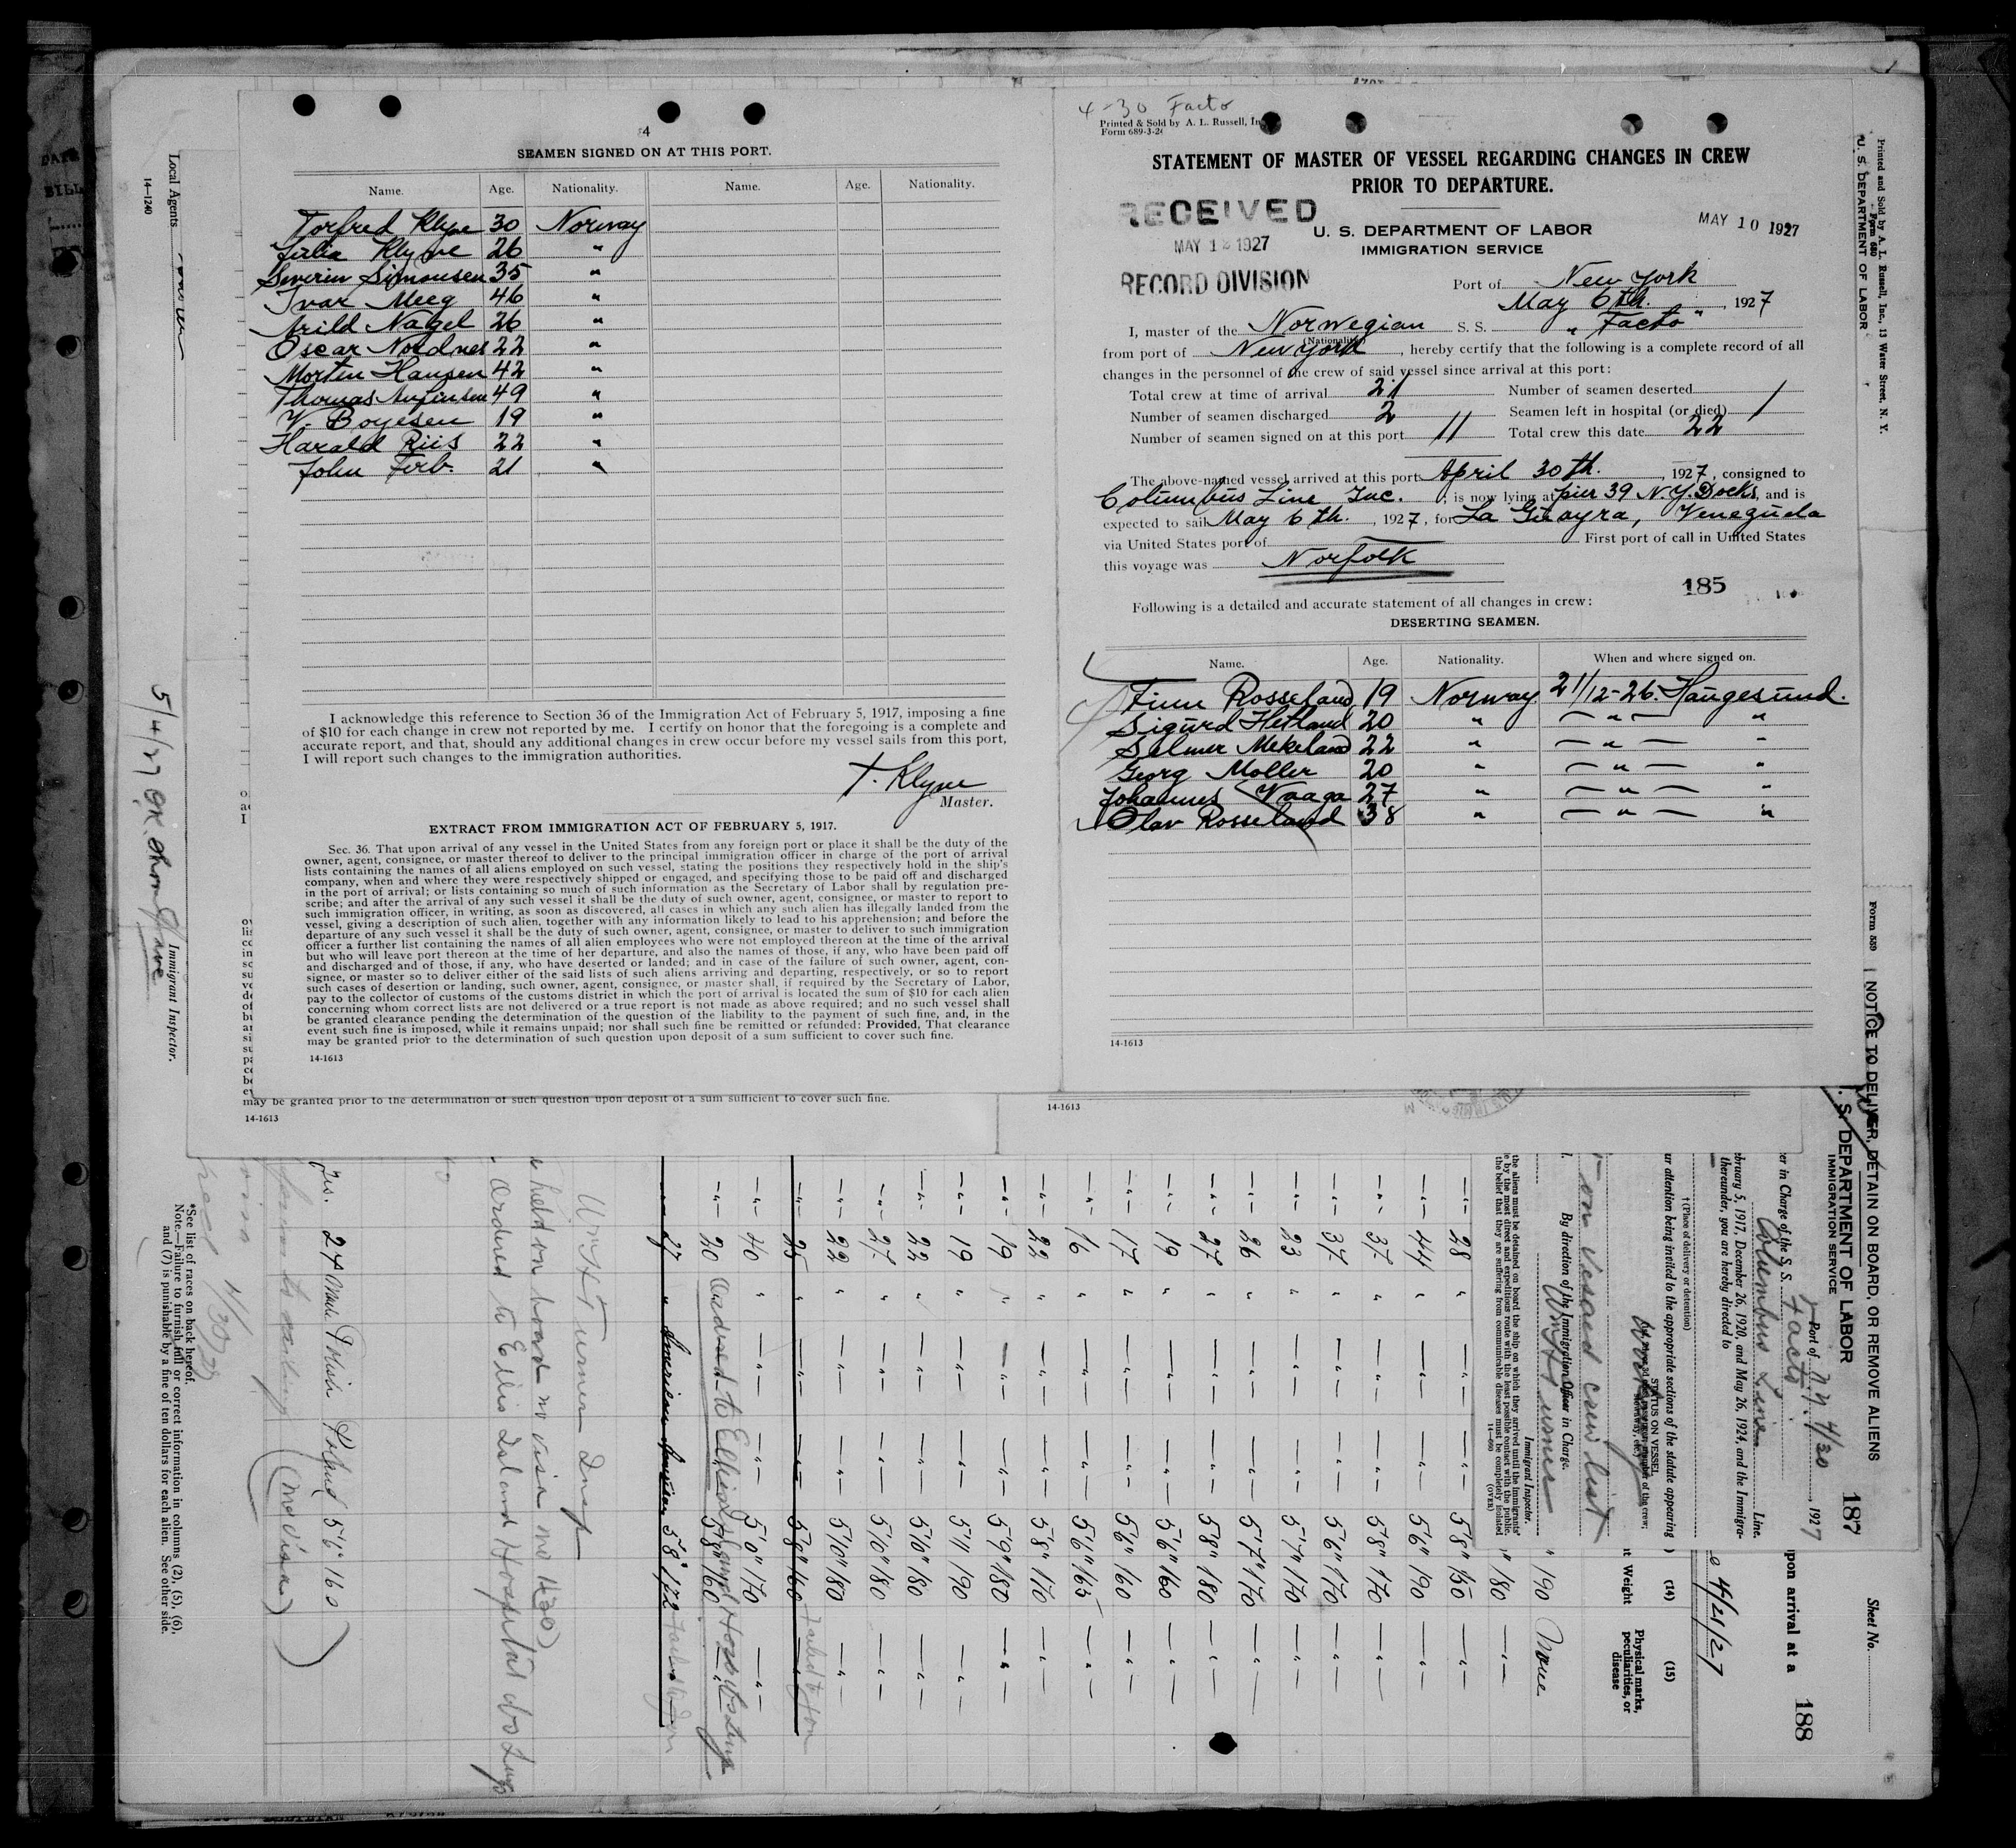 4
SEAMEN SIGNED ON AT THIS PORT.
Name. Age. Nationality. Name. Age. Nationality.
Torfred Klyne 30 Norway
Julia Klyne 26 "
Severin Simonsen 35 "
Ivar Meeg 46 "
Arild Nagel 26 "
Oscar Nordnes 22 "
Morten Hansen 42 "
Thomas 49 "
W. Boyesen 19 "
Harald Riis 22 "
John Ferb. 21 "
I acknowledge this reference to Section 36 of the Immigration Act of February 5, 1917, imposing a fine
of $10 for each change in crew not reported by me. I certify on honor that the foregoing is a complete and
accurate report, and that, should any additional changes in crew occur before my vessel sails from this port,
I will report such changes to the immigration authorities.
T. Klyne
Master.
EXTRACT FROM IMMIGRATION ACT OF FEBRUARY 5, 1917.
Sec. 36. That upon arrival of any vessel in the United States from any foreign port or place it shall be the duty of the
owner, agent, consignee, or master thereof to deliver to the principal immigration officer in charge of the port of arrival
lists containing the names of all aliens employed on such vessel, stating the positions they respectively hold in the ship's
company, when and where they were respectively shipped or engaged, and specifying those to be paid off and discharged
in the port of arrival; or lists containing so much of such information as the Secretary of Labor shall by regulation pre-
scribe; and after the arrival of any such vessel it shall be the duty of such owner, agent, consignee, or master to report to
such immigration officer, in writing, as soon as discovered, all cases in which any such alien has illegally landed from the
vessel, giving a description of such alien, together with any information likely to lead to his apprehension; and before the
departure of any such vessel it shall be the duty of such owner, agent, consignee, or master to deliver to such immigration
officer a further list containing the names of all alien employees who were not employed thereon at the time of the arrival
but who will leave port thereon at the time of her departure, and also the names of those, if any, who have been paid off
and discharged and of those, if any, who have deserted or landed; and in case of the failure of such owner, agent, con-
signee, or master so to deliver either of the said lists of such aliens arriving and departing, respectively, or so to report
such cases of desertion or landing, such owner, agent, consignee, or master shall, if required by the Secretary of Labor,
pay to the collector of customs of the customs district in which the port of arrival is located the sum of $10 for each alien
concerning whom correct lists are not delivered or a true report is not made as above required; and no such vessel shall
be granted clearance pending the determination of the question of the liability to the payment of such fine, and, in the
event such fine is imposed, while it remains unpaid; nor shall such fine be remitted or refunded: Provided, That clearance
may be granted prior to the determination of such question upon deposit of a sum sufficient to cover such fine.
14-1613
may be granted prior to the determination of such question upon deposit of a sum sufficient to cover such fine.
14-1613
14-1613
4-30 Facto
Printed & Sold by A. L. Russell, In
Form 689-3-26
STATEMENT OF MASTER OF VESSEL REGARDING CHANGES IN CREW
PRIOR TO DEPARTURE.
RECEIVED
MAY 12 1927
RECORD DIVISION
U. S. DEPARTMENT OF LABOR
IMMIGRATION SERVICE
MAY 10 1927
Port of New York
May 6th. , 1927
I, master of the Norwegian S. S. "Facto"
(Nationality)
from port of New York , hereby certify that the following is a complete record of all
changes in the personnel of the crew of said vessel since arrival at this port:
Total crew at time of arrival 21 Number of seamen deserted
Number of seamen discharged 2 Seamen left in hospital (or died) 1
Number of seamen signed on at this port 11 Total crew this date 22
The above-named vessel arrived at this port April 30th. , 1927, consigned to
Columbus Line Inc. ; is now lying at pier 39 N.Y. Docks, and is
expected to sail May 6th. , 1927, for La Guayra, Venezuela
via United States port of First port of call in United States
this voyage was Norfolk
185
Following is a detailed and accurate statement of all changes in crew:
DESERTING SEAMEN.
Name. Age. Nationality. When and where signed on.
Finn Rosseland 19 Norway 21/12-26. Haugesund.
Sigurd Hetland 20 " — " — "
Selmer Mekeland 22 " — " — "
Georg Moller 20 " — " — "
Johannes Vaaga 27 " — " — "
Olav Rosseland 38 " — " — "
14-1613
Local Agents
14-1240
5/4/27 OK.
Immigrant Inspector.
Printed and Sold by A. L. Russell, Inc., 13 Water Street, N. Y.
Form 680
U. S. DEPARTMENT OF LABOR
Form 559
NOTICE TO DELIVER, DETAIN ON BOARD, OR REMOVE ALIENS
187
S. DEPARTMENT OF LABOR
IMMIGRATION SERVICE
Port of N.Y. 4/30 , 1927
er in Charge of the S. S. Facto
Columbus Line Line.
bruary 5, 1917, December 26, 1920, and May 26, 1924, and the Immigra-
thereunder, you are hereby directed to
(Place of delivery or detention)
ur attention being invited to the appropriate sections of the statute appearing
STATUS ON VESSEL
on vessel crew list
By direction of the Immigration Officer in Charge.
Wm H Turner
Immigrant Inspector.
the aliens must be detained on board the ship on which they arrived until the immigrants'
e by the most direct and expeditious route with the least possible contact with the public.
the belief that they are suffering from communicable diseases must be completely isolated
14-660 (OVER)
Sheet No.
upon arrival at a 188
4/21/27
(14) (15)
Weight
Physical marks, peculiarities, or disease
" 190 None
" 180 — " —
— " — 28 " — " — — " — 5'8" 150 — " —
— " — 44 " — " — — " — 5'6" 190 — " —
— " — 37 " — " — — " — 5'8" 170 — " —
— " — 34 " — " — — " — 5'6" 170 — " —
— " — 23 " — " — — " — 5'7" 170 — " —
— " — 26 " — " — — " — 5'7" 170 — " —
— " — 27 " — " — — " — 5'8" 180 — " —
— " — 19 " — " — — " — 5'6" 160 — " —
— " — 17 " — " — — " — 5'6" 160 — " —
— " — 16 " — " — — " — 5'6" 165 — " —
— " — 22 " — " — — " — 5'8" 170 — " —
— " — 19 " — " — — " — 5'9" 180 — " —
— " — 19 " — " — — " — 5'11" 190 — " —
— " — 22 " — " — — " — 5'10" 180 — " —
— " — 27 " — " — — " — 5'10" 180 — " —
— " — 22 " — " — — " — 5'10" 180 — " —
— " — 25 " — " — — " — 5'8" 160 Failed to Join
— " — 40 " — " — — " — 5'0" 170 — " —
— " — 20 Ordered to Ellis Island Hosp. 5'8" 160
— " — 27 " American 5'8" 172 Failed to Join
Wm H Turner Insp
held on board no visa no
Ordered to Ellis Island Hospital
27 Male Polish Poland 5'6" 160
(No visa)
4/30/27
*See list of races on back hereof.
Note.—Failure to furnish full or correct information in columns (2), (5), (6),
and (7) is punishable by a fine of ten dollars for each alien. See other side.